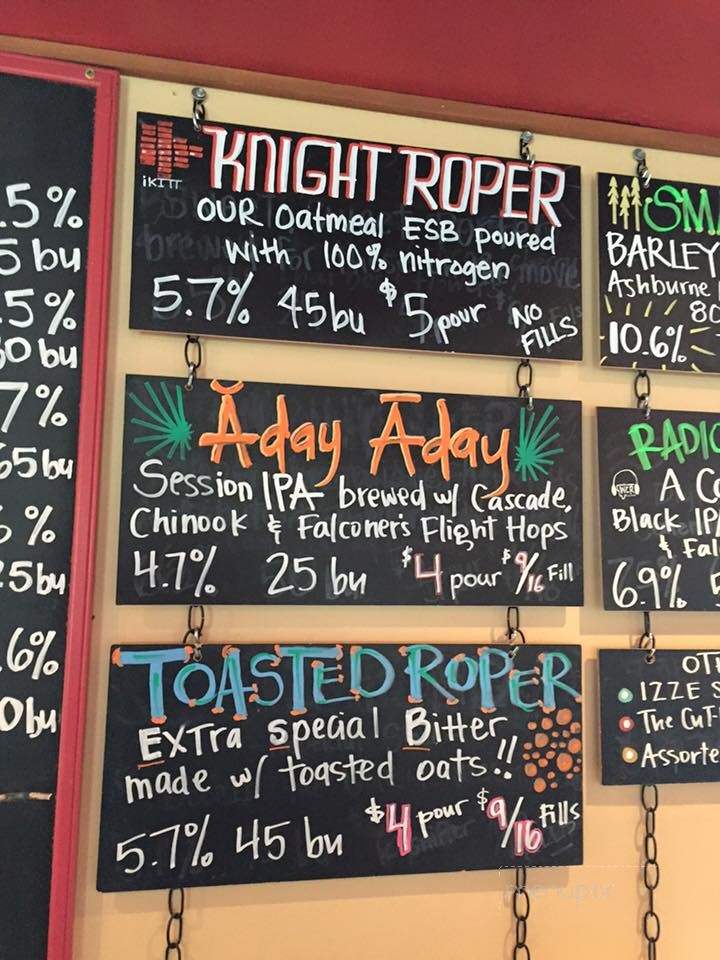 .5%
5 bu
.5%
30 bu
7%
65 bu
%
5 bu
.6%
0 bu
iKITT
KNIGHT ROPER
OUR Oatmeal ESB poured
with 100% nitrogen
5.7% 45bu $5pour NO FILLS
Ăday Āday
Session IPA brewed w/ Cascade,
Chinook & Falconer's Flight Hops
4.7% 25 bu $4 pour $9/16 Fill
TOASTED ROPER
Extra Special Bitter
made w/ toasted oats!!
5.7% 45 bu $4 pour $9/16 Fills
SM
BARLEY
Ashburne
80
10.6%
RADIO
A Co
Black IPA
& Fal
6.9% 5
OTH
IZZE S
The Cuf
Assorte